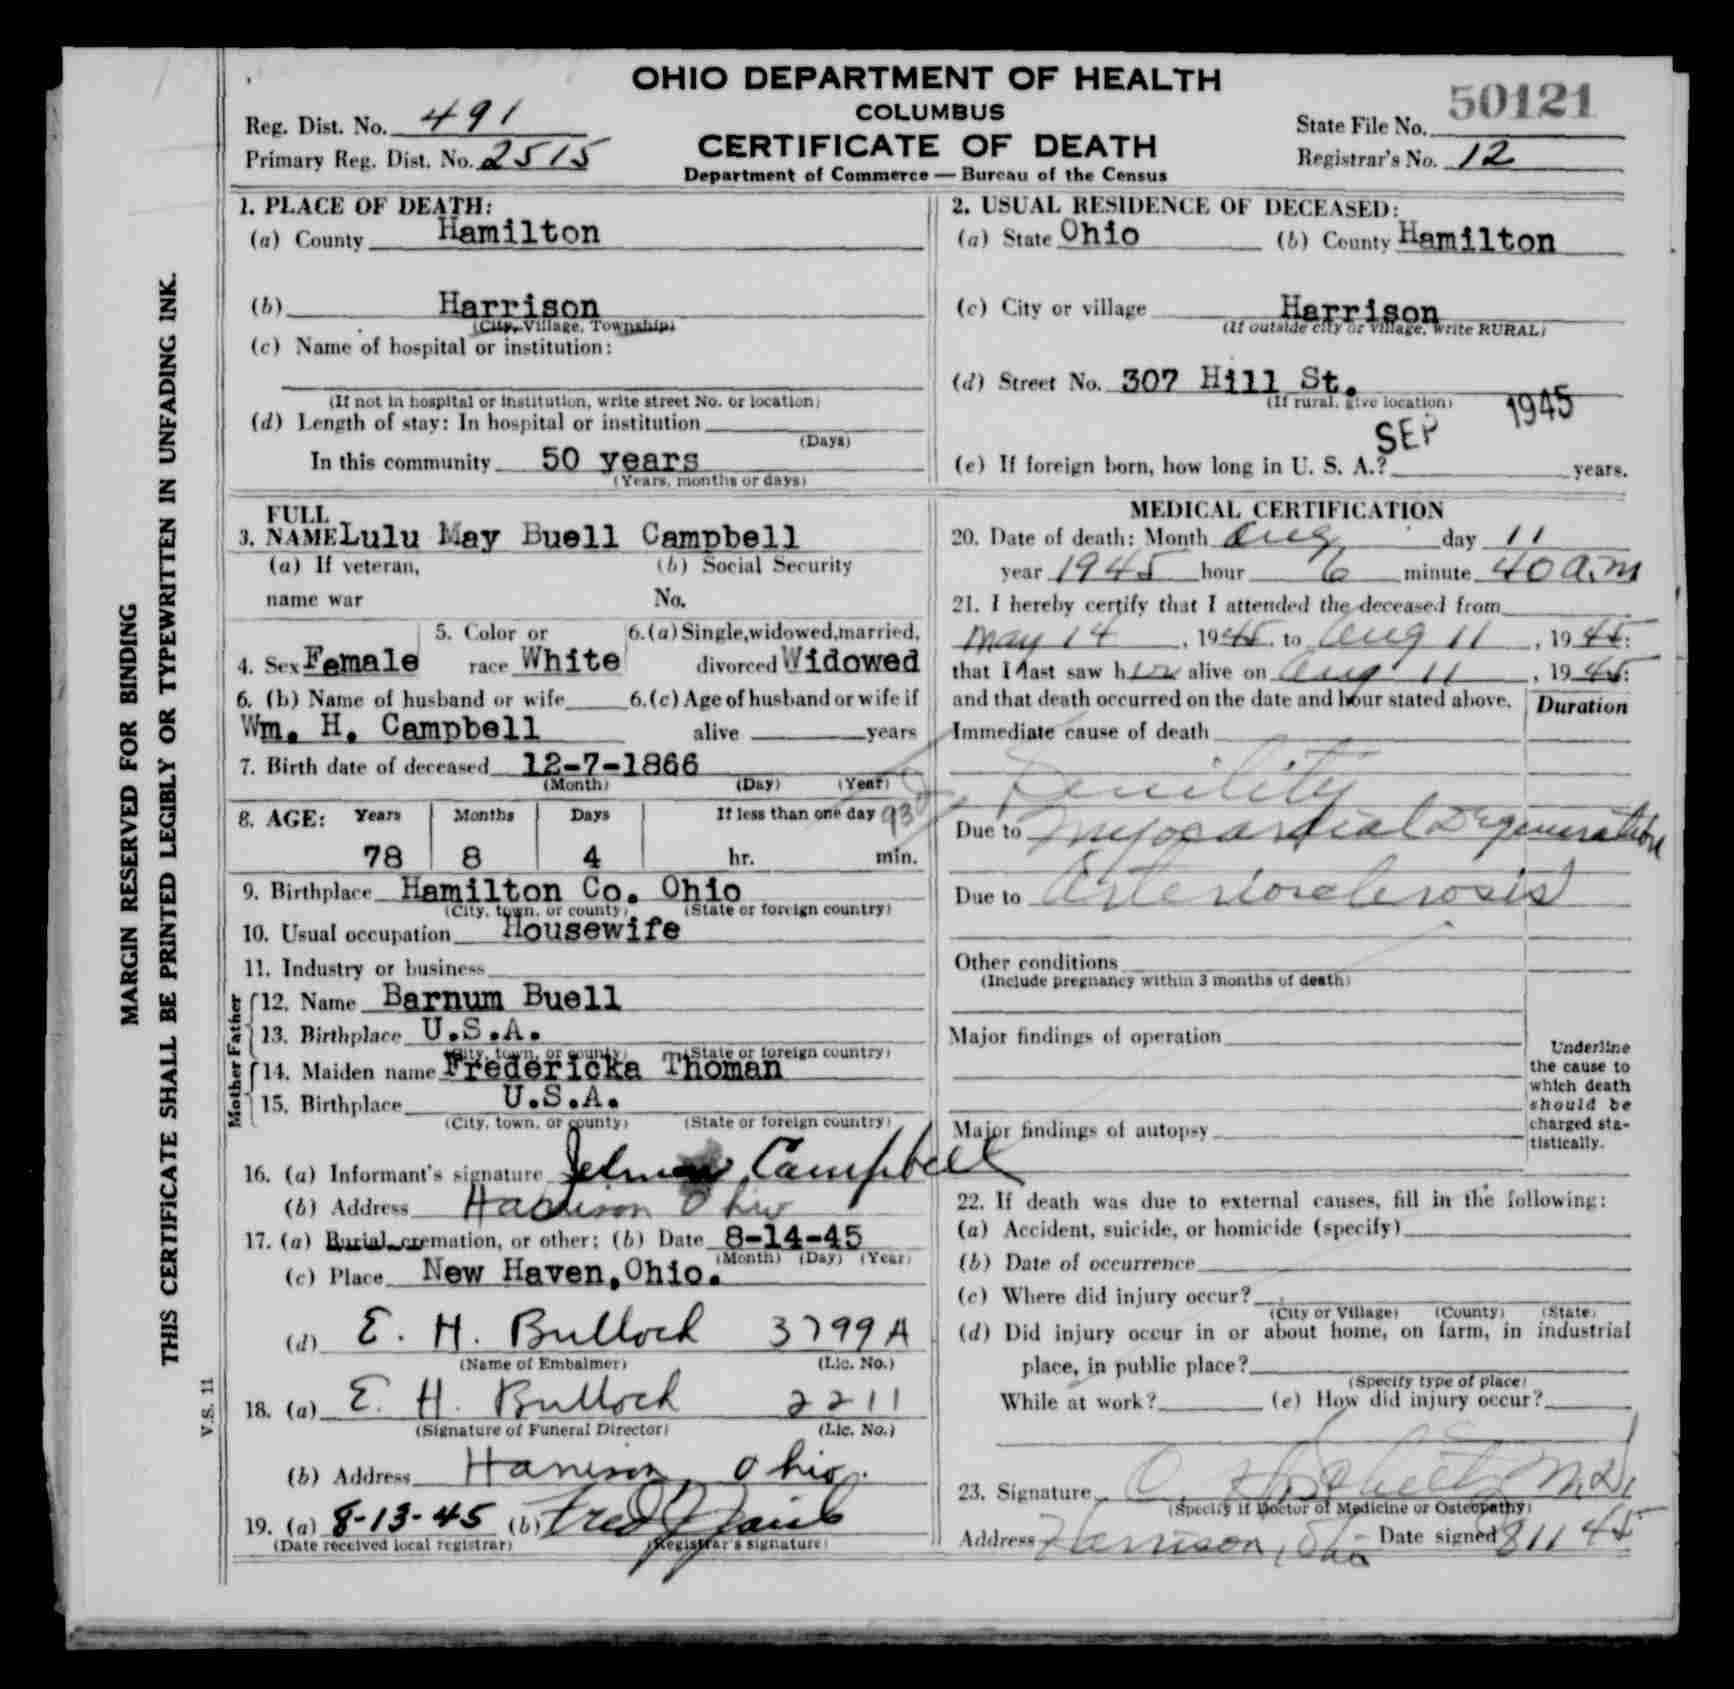 OHIO DEPARTMENT OF HEALTH
COLUMBUS
CERTIFICATE OF DEATH
Department of Commerce — Bureau of the Census
Reg. Dist. No. 491
Primary Reg. Dist. No. 2515
50121
State File No.
Registrar's No. 12
MARGIN RESERVED FOR BINDING
THIS CERTIFICATE SHALL BE PRINTED LEGIBLY OR TYPEWRITTEN IN UNFADING INK.
V.S. 11
1. PLACE OF DEATH:
(a) County Hamilton
(b) Harrison
(City, Village, Township)
(c) Name of hospital or institution:
(If not in hospital or institution, write street No. or location)
(d) Length of stay: In hospital or institution
(Days)
In this community 50 years
(Years, months or days)
2. USUAL RESIDENCE OF DECEASED:
(a) State Ohio (b) County Hamilton
(c) City or village Harrison
(If outside city or village, write RURAL)
(d) Street No. 307 Hill St.
(If rural, give location)
SEP 1945
(e) If foreign born, how long in U. S. A.? years.
3. FULL NAME Lulu May Buell Campbell
(a) If veteran, (b) Social Security
name war No.
4. Sex Female 5. Color or race White 6. (a) Single, widowed, married, divorced Widowed
6. (b) Name of husband or wife 6. (c) Age of husband or wife if
Wm. H. Campbell alive years
7. Birth date of deceased 12-7-1866
(Month) (Day) (Year)
8. AGE: Years Months Days If less than one day
93d
78 8 4 hr. min.
9. Birthplace Hamilton Co. Ohio
(City, town, or county) (State or foreign country)
10. Usual occupation Housewife
11. Industry or business
Father
12. Name Barnum Buell
13. Birthplace U.S.A.
(City, town, or county) (State or foreign country)
Mother
14. Maiden name Fredericka Thoman
15. Birthplace U.S.A.
(City, town, or county) (State or foreign country)
16. (a) Informant's signature Campbell
(b) Address Harrison Ohio
17. (a) Burial, cremation, or other: (b) Date 8-14-45
(Month) (Day) (Year)
(c) Place New Haven, Ohio.
(d) E. H. Bullock 3799A
(Name of Embalmer) (Lic. No.)
18. (a) E. H. Bullock 2211
(Signature of Funeral Director) (Lic. No.)
(b) Address Harrison, Ohio.
19. (a) 8-13-45 (b) Fred
(Date received local registrar) (Registrar's signature)
MEDICAL CERTIFICATION
20. Date of death: Month Aug day 11
year 1945 hour 6 minute 40 a.m
21. I hereby certify that I attended the deceased from
May 14, 1945 to Aug 11, 1945:
that I last saw her alive on Aug 11, 1945:
and that death occurred on the date and hour stated above.
Duration
Immediate cause of death
Senility
Due to Myocardial Degeneration
Due to Arteriosclerosis
Other conditions
(Include pregnancy within 3 months of death)
Major findings of operation
Major findings of autopsy
Underline
the cause to
which death
should be
charged sta-
tistically.
22. If death was due to external causes, fill in the following:
(a) Accident, suicide, or homicide (specify)
(b) Date of occurrence
(c) Where did injury occur?
(City or Village) (County) (State)
(d) Did injury occur in or about home, on farm, in industrial
place, in public place?
(Specify type of place)
While at work? (e) How did injury occur?
23. Signature M.D.
(Specify if Doctor of Medicine or Osteopathy)
Address Harrison, Ohio Date signed 8 11 45